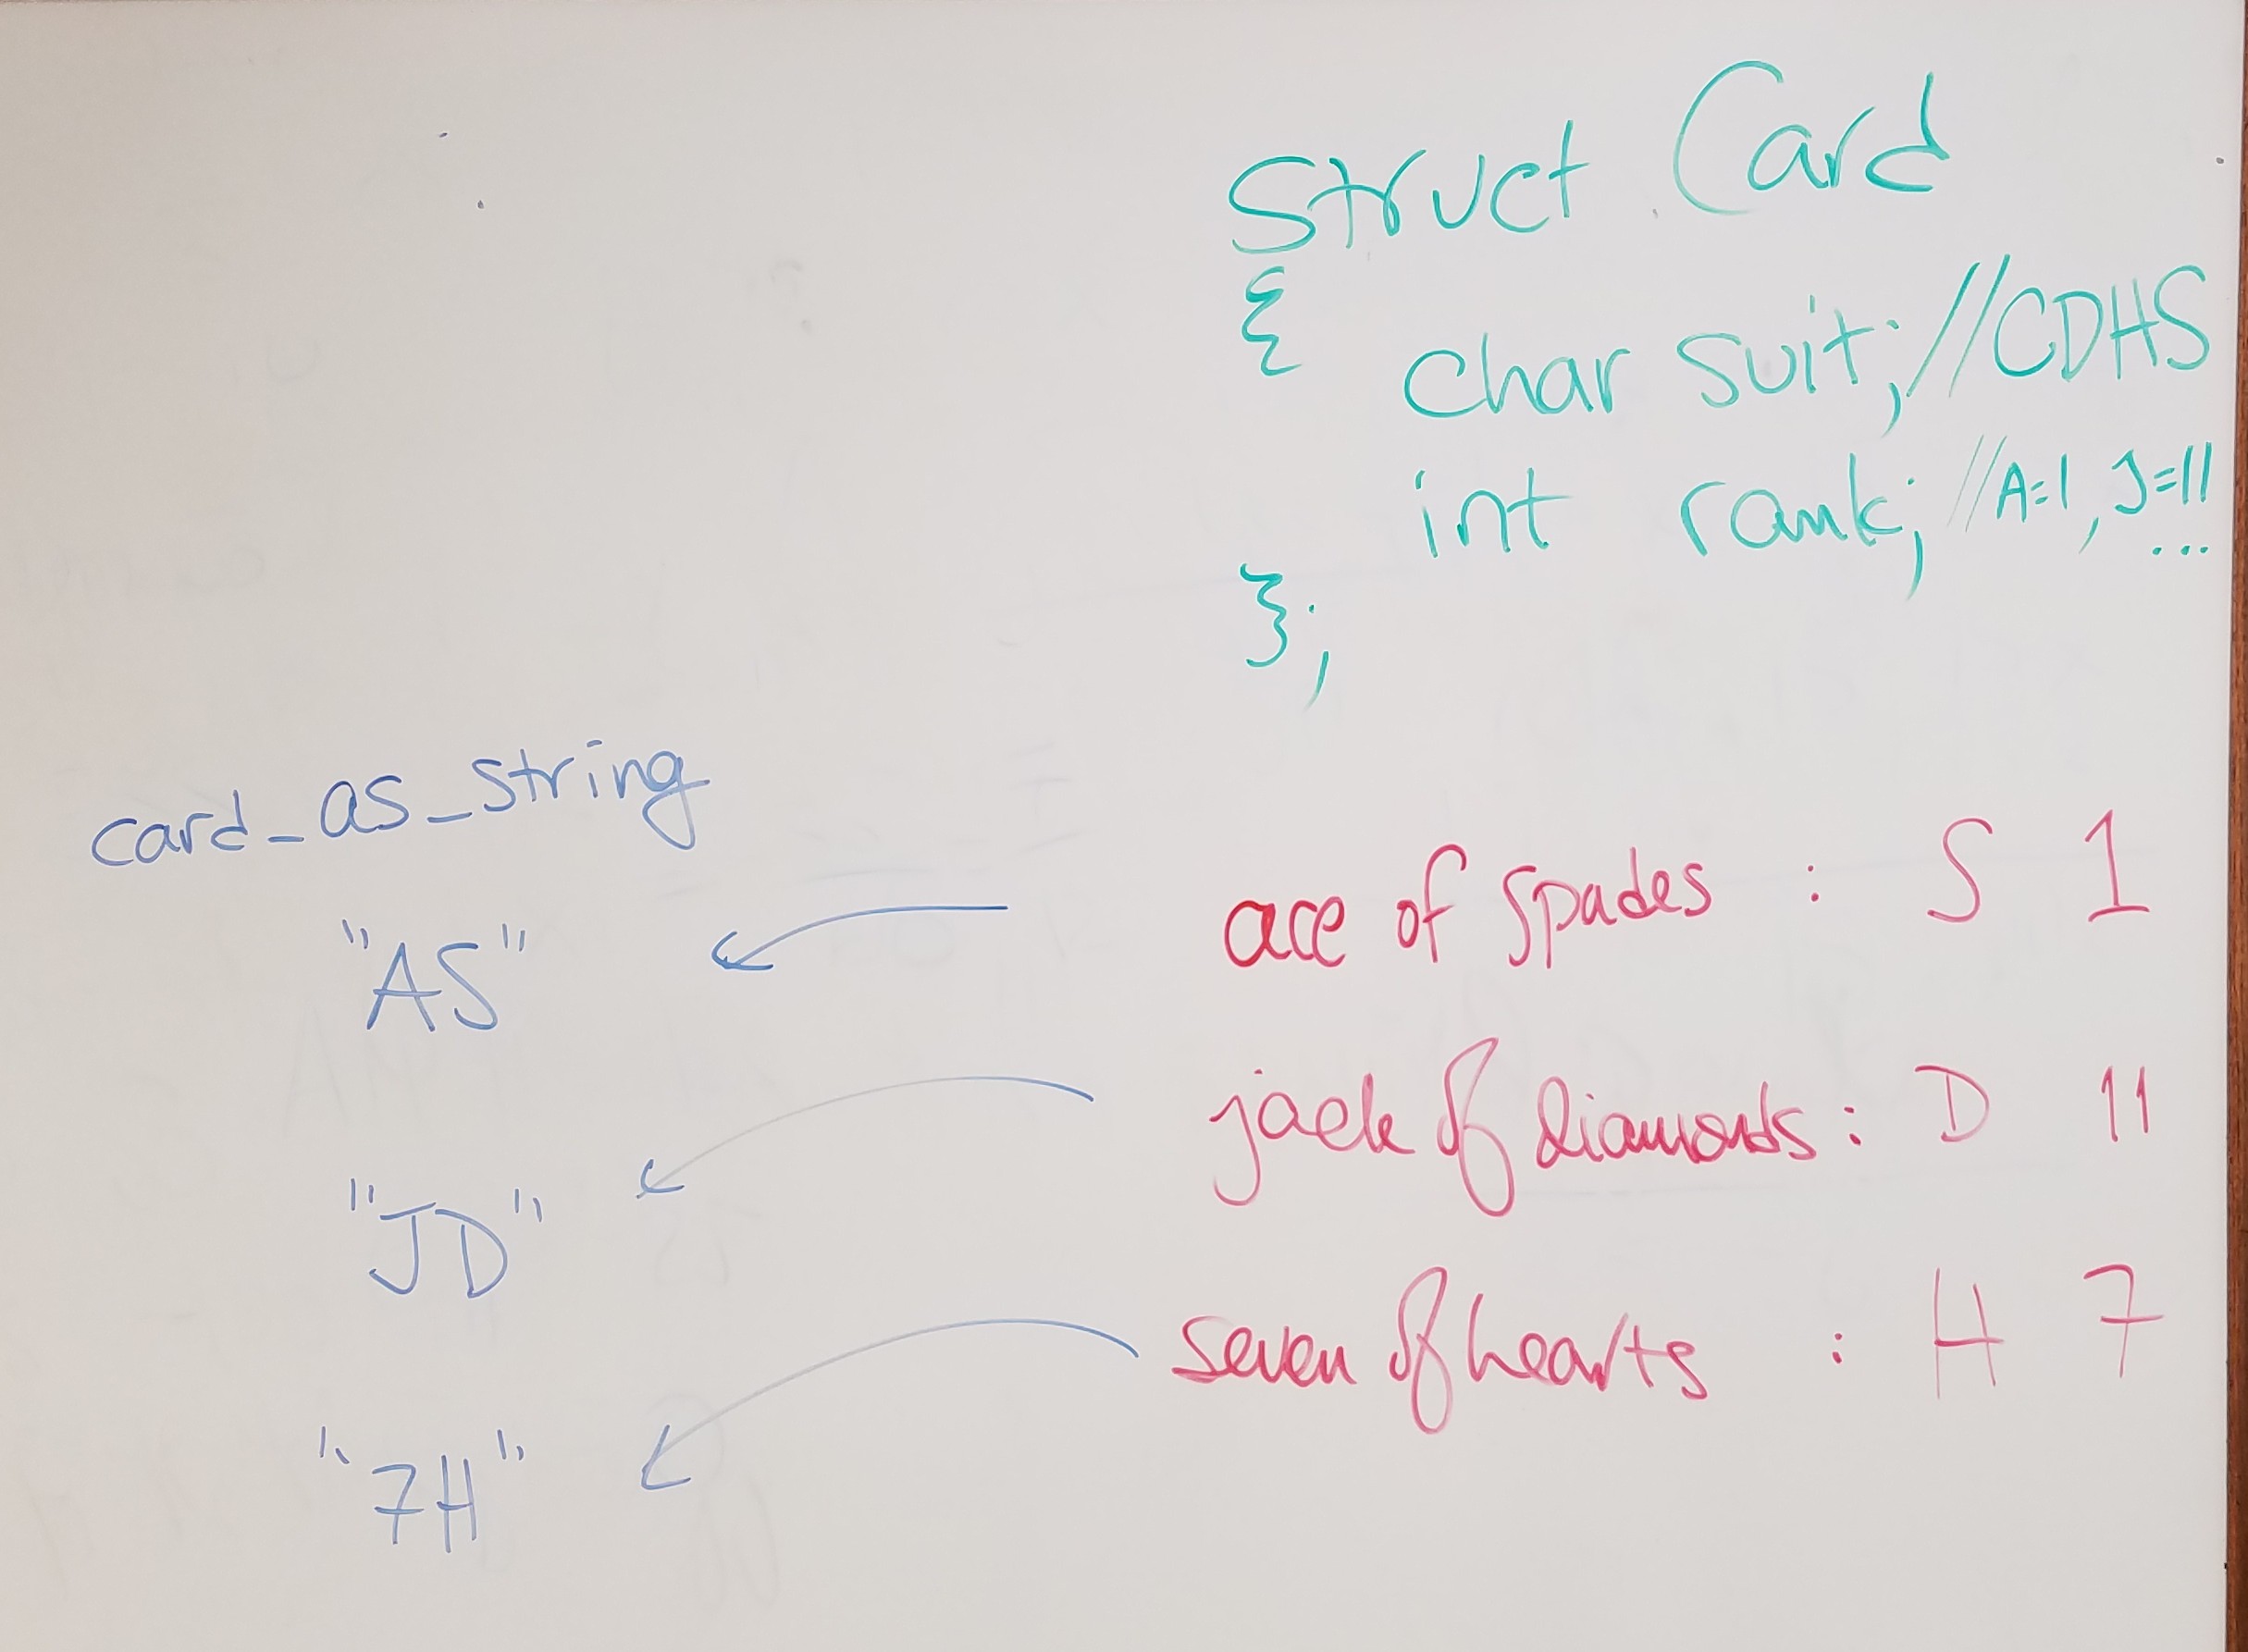 Struct Card
{
char suit; //CDHS
int rank; //A=1, J=11
...
};
card_as_string
"AS"
ace of spades : S 1
"JD"
jack of diamonds : D 11
"7H"
seven of hearts : H 7